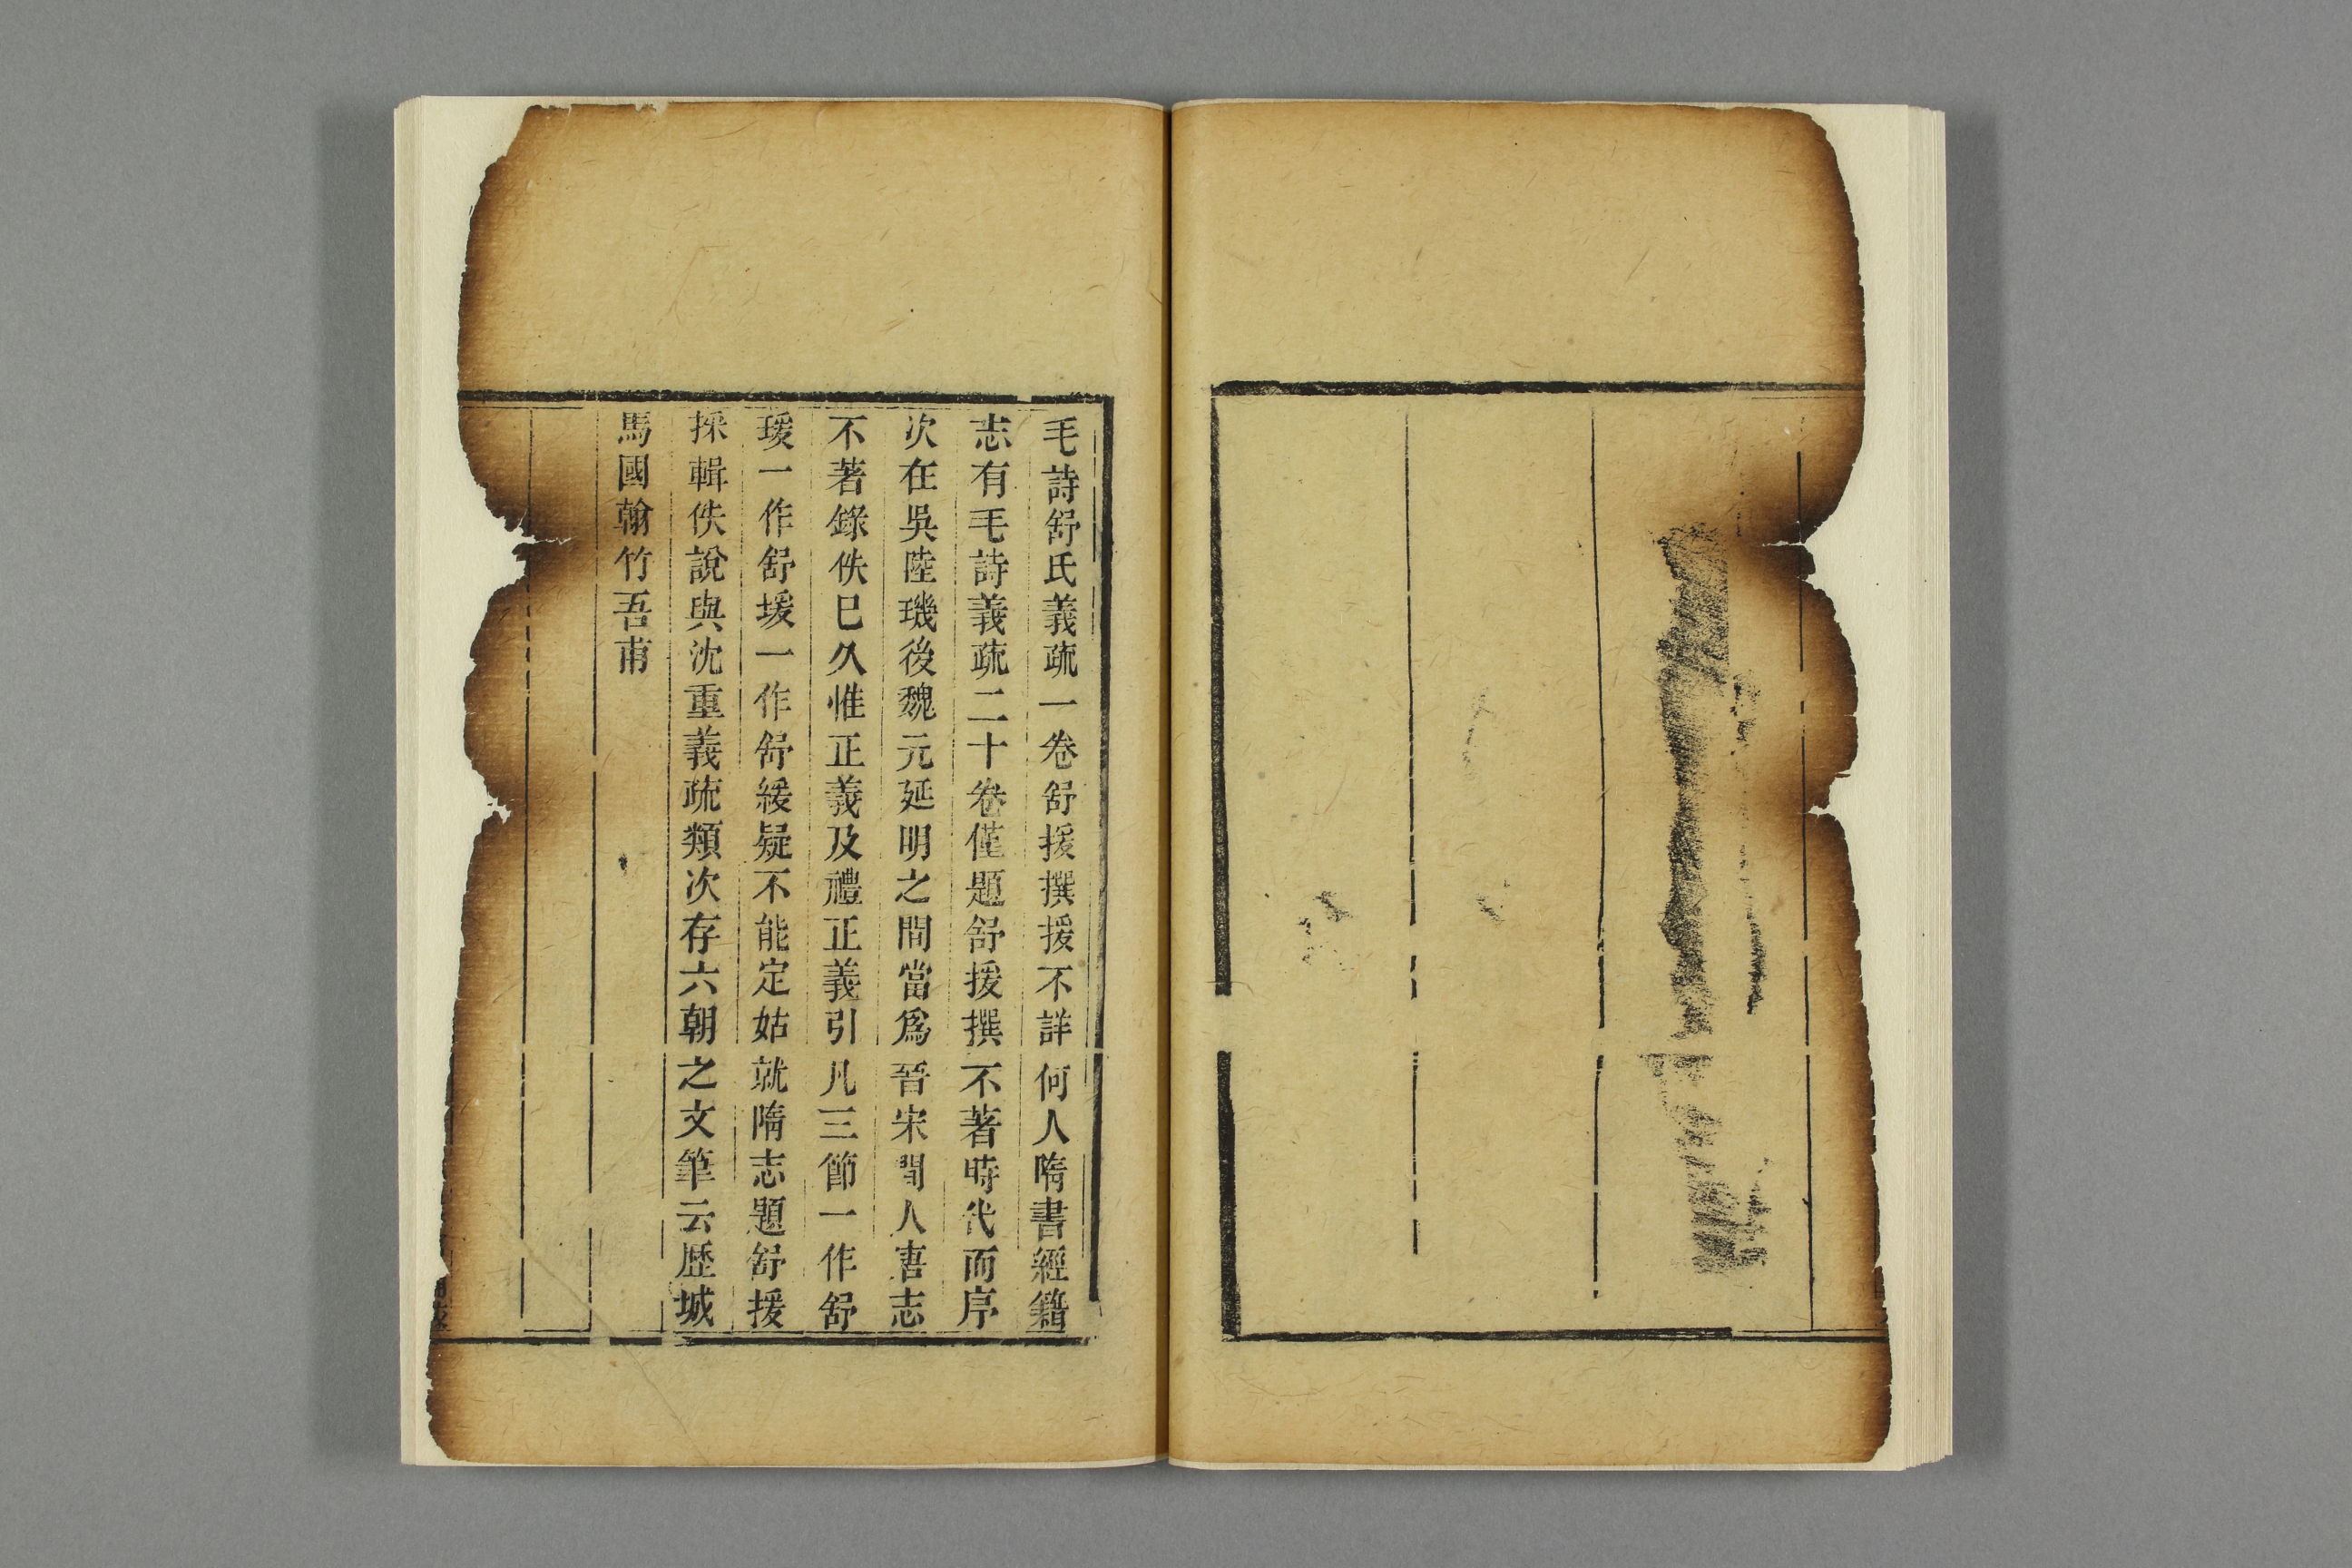 毛詩舒氏義疏一卷舒援撰援不詳何人隋書經籍
志有毛詩義疏二十卷僅題舒援撰不著時代而序
次在吳陸璣後魏元延明之間當爲晉宋間人唐志
不著錄佚巳久惟正義及禮正義引凡三節一作舒
瑗一作舒堗一作舒緩疑不能定姑就隋志題舒援
採輯佚說與沈重義疏類次存六朝之文筆云歷城
馬國翰竹吾甫